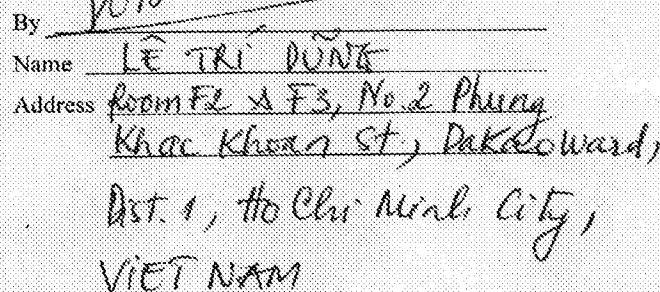 By
Name LÊ TRÍ DŨNG
Address Room F2 & F3, No.2 Phung
Khac Khoan St., Dakao Ward,
Dist. 1, Ho Chi Minh City,
VIET NAM